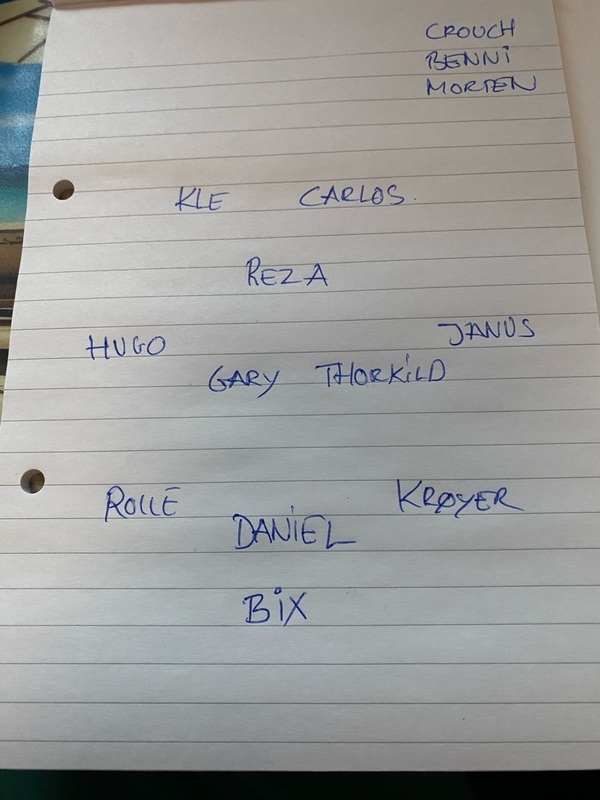 CROUCH
BENNi
MORTEN
KLE CARLOS.
REZA
HUGO JANUS
GARY THORKiLD
ROLLE KRØYER
DANiEL
BiX